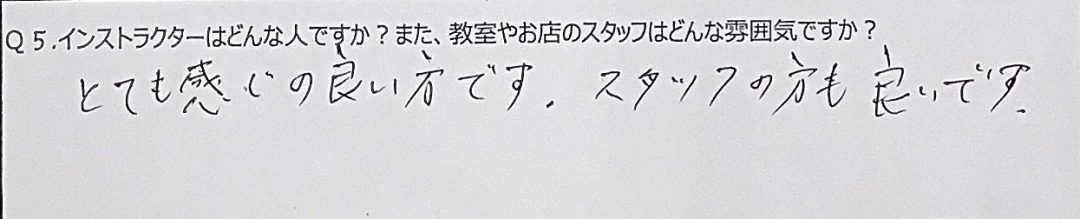 Q５.インストラクターはどんな人ですか？また、教室やお店のスタッフはどんな雰囲気ですか？
とても感じの良い方です. スタッフの方も良いです.